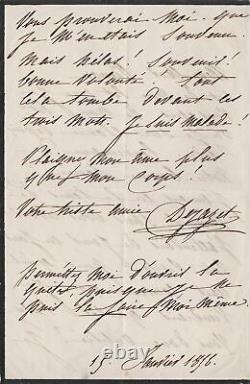 Vous prouverai moi. que
je m'en etais souvenu.
Mais hélas! Souvenir!
bonne volonté! tout
cela tombe devant ces
trois mots. Je suis Malade!
Plaignez mon âme plus
que mon corps!
Votre triste amie Dejazet
permettez moi d'ouvrir la
puis que je ne
puis la faire moi même.
15 Janvier 1856.